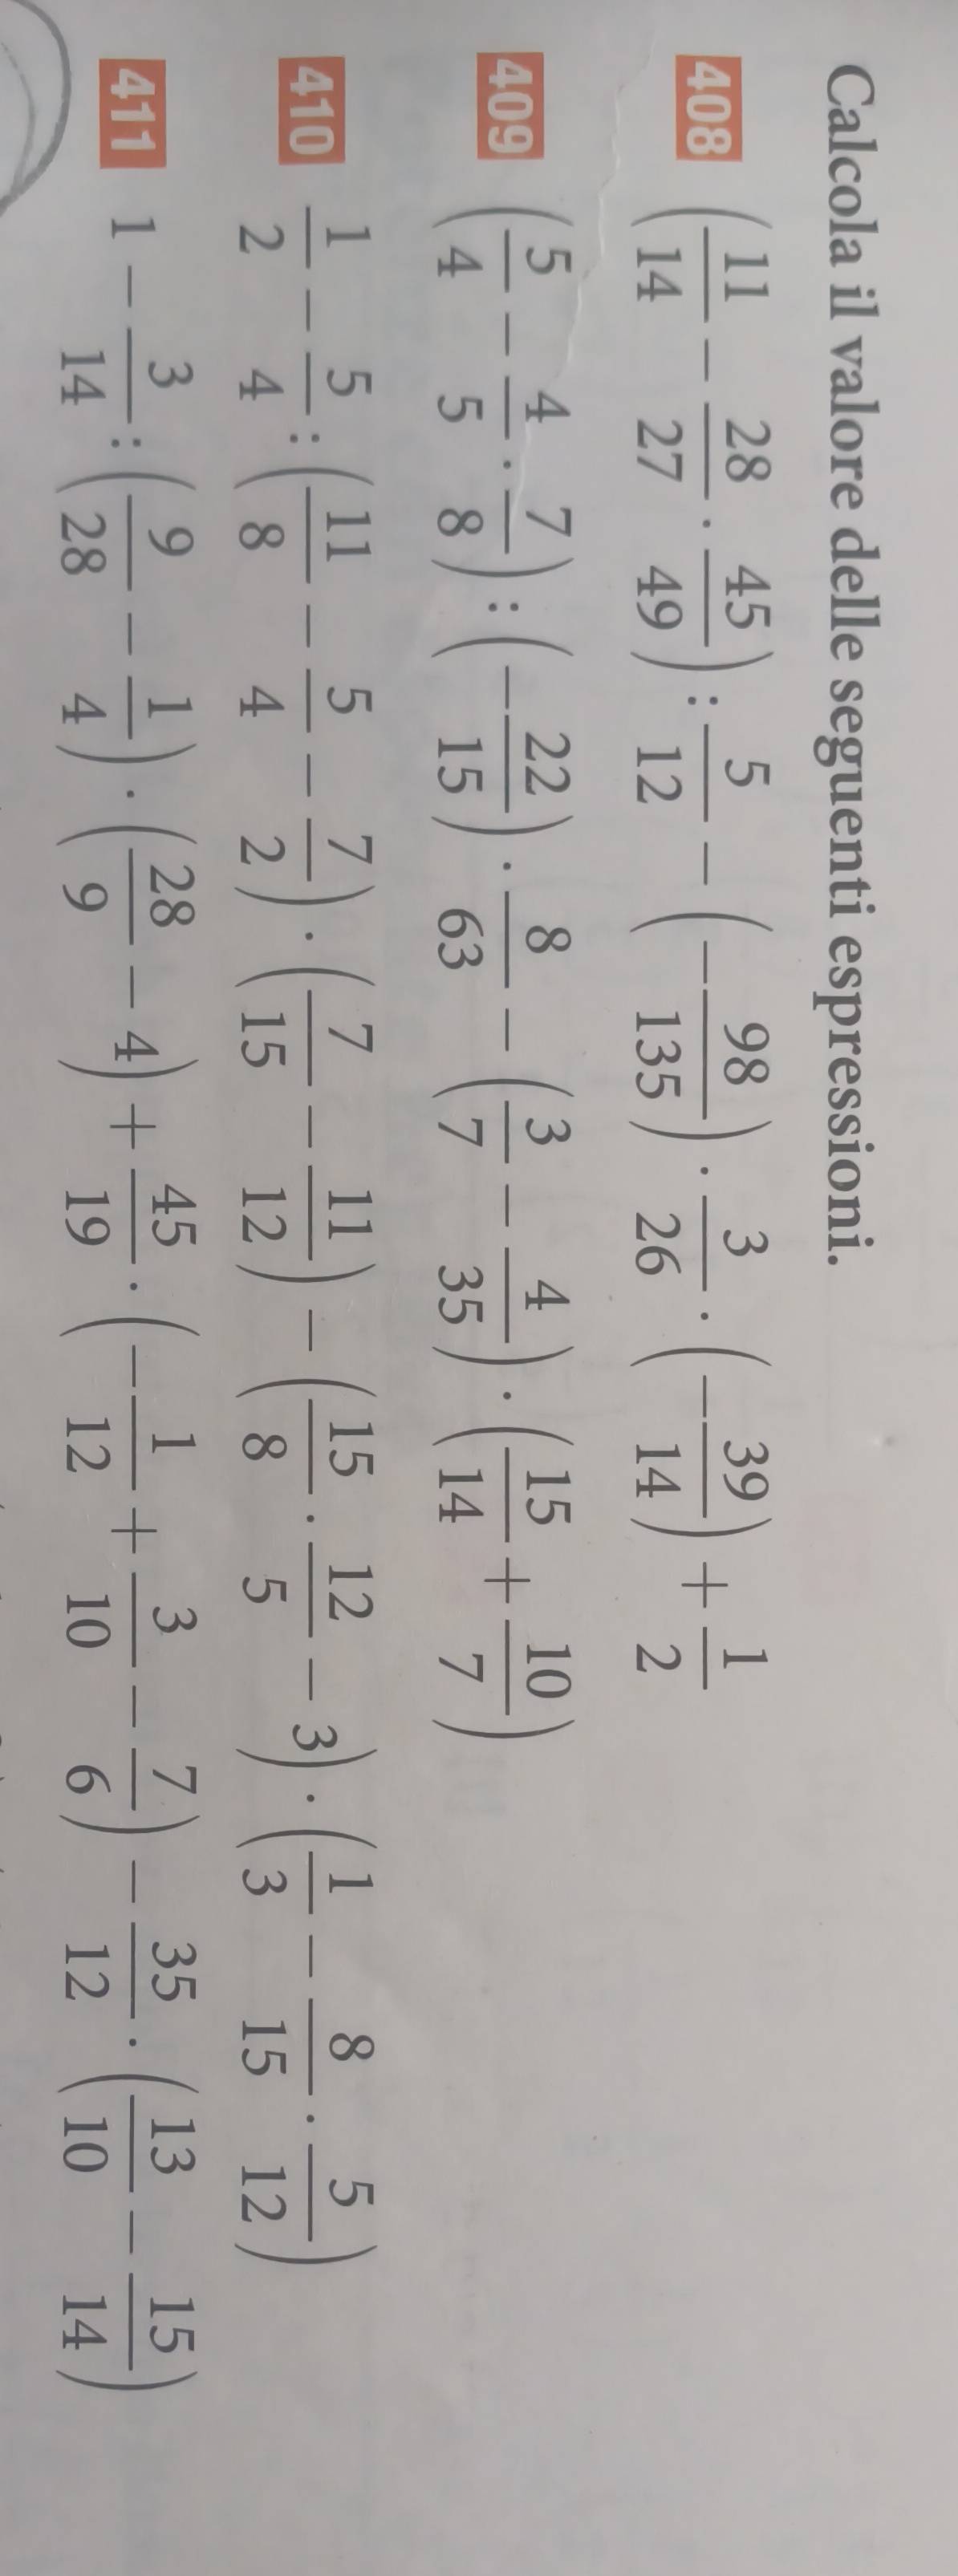 Calcola il valore delle seguenti espressioni.
408 (11/14 − 28/27 · 45/49) : 5/12 − (−98/135) · 3/26 · (−39/14) + 1/2
409 (5/4 − 4/5 · 7/8) : (−22/15) · 8/63 − (3/7 − 4/35) · (15/14 + 10/7)
410 1/2 − 5/4 : (11/8 − 5/4 − 7/2) · (7/15 − 11/12) − (15/8 · 12/5 − 3) · (1/3 − 8/15 · 5/12)
411 1 − 3/14 : (9/28 − 1/4) · (28/9 − 4) + 45/19 · (−1/12 + 3/10 − 7/6) − 35/12 · (13/10 − 15/14)